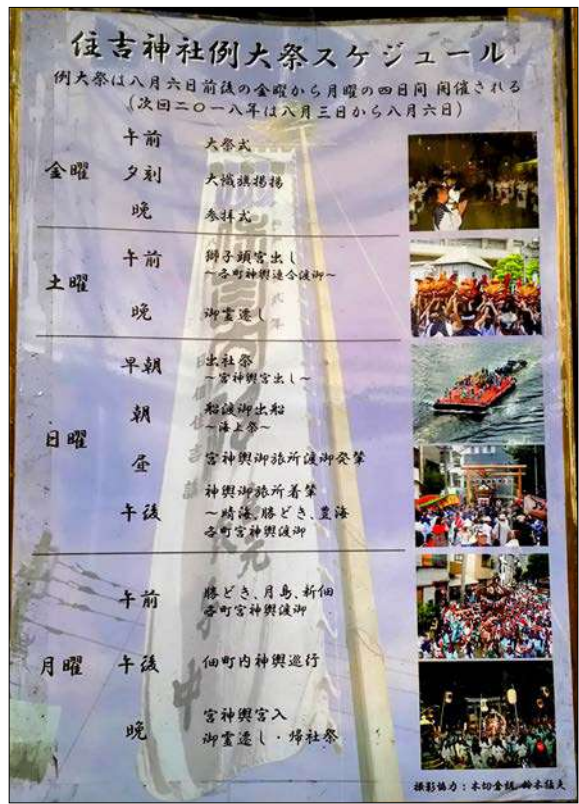 住吉神社例大祭スケジュール
例大祭は八月六日前後の金曜から月曜の四日間 開催される
(次回二〇一八年は八月三日から八月六日)
金曜
午前 大祭式
夕刻 大幟旗掲揚
晩 参拝式
土曜
午前 獅子頭宮出し
～各町神輿連合渡御～
晩 御霊遷し
日曜
早朝 出社祭
～宮神輿宮出し～
朝 船渡御出船
～海上祭～
昼 宮神輿御旅所渡御発輦
午後 神輿御旅所着輦
～晴海、勝どき、豊海
各町宮神輿渡御
月曜
午前 勝どき、月島、新佃
各町宮神輿渡御
午後 佃町内神輿巡行
晩 宮神輿宮入
御霊遷し・帰社祭
撮影協力：